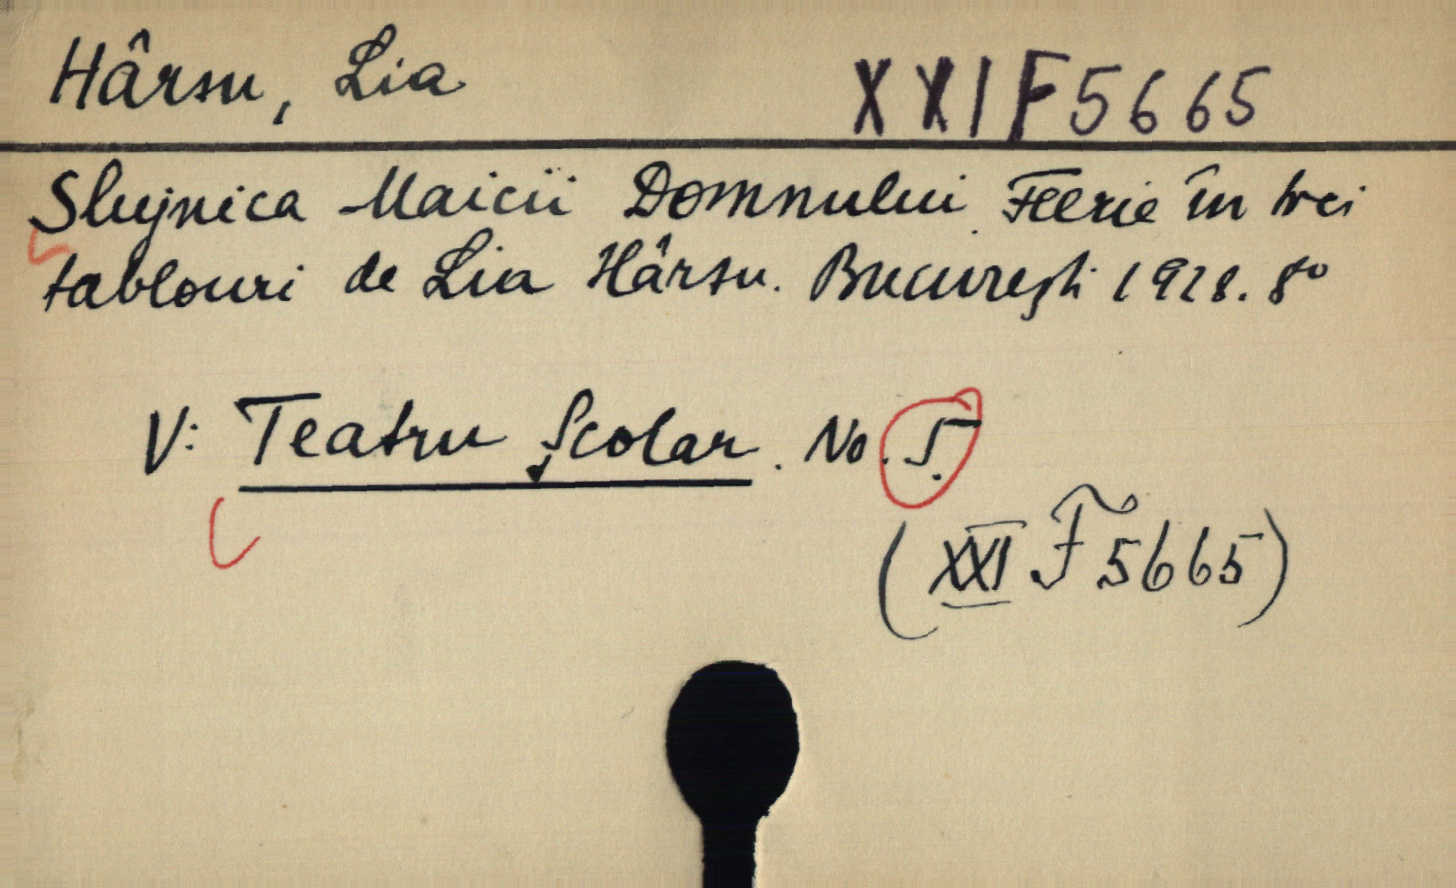 Hârsu, Lia
XXI F 5665
Slujnica Maicii Domnului. Feerie în trei
tablouri de Lia Hârsu. București 1928. 8°
V: Teatru Școlar. No. 5.
(XXI F 5665)